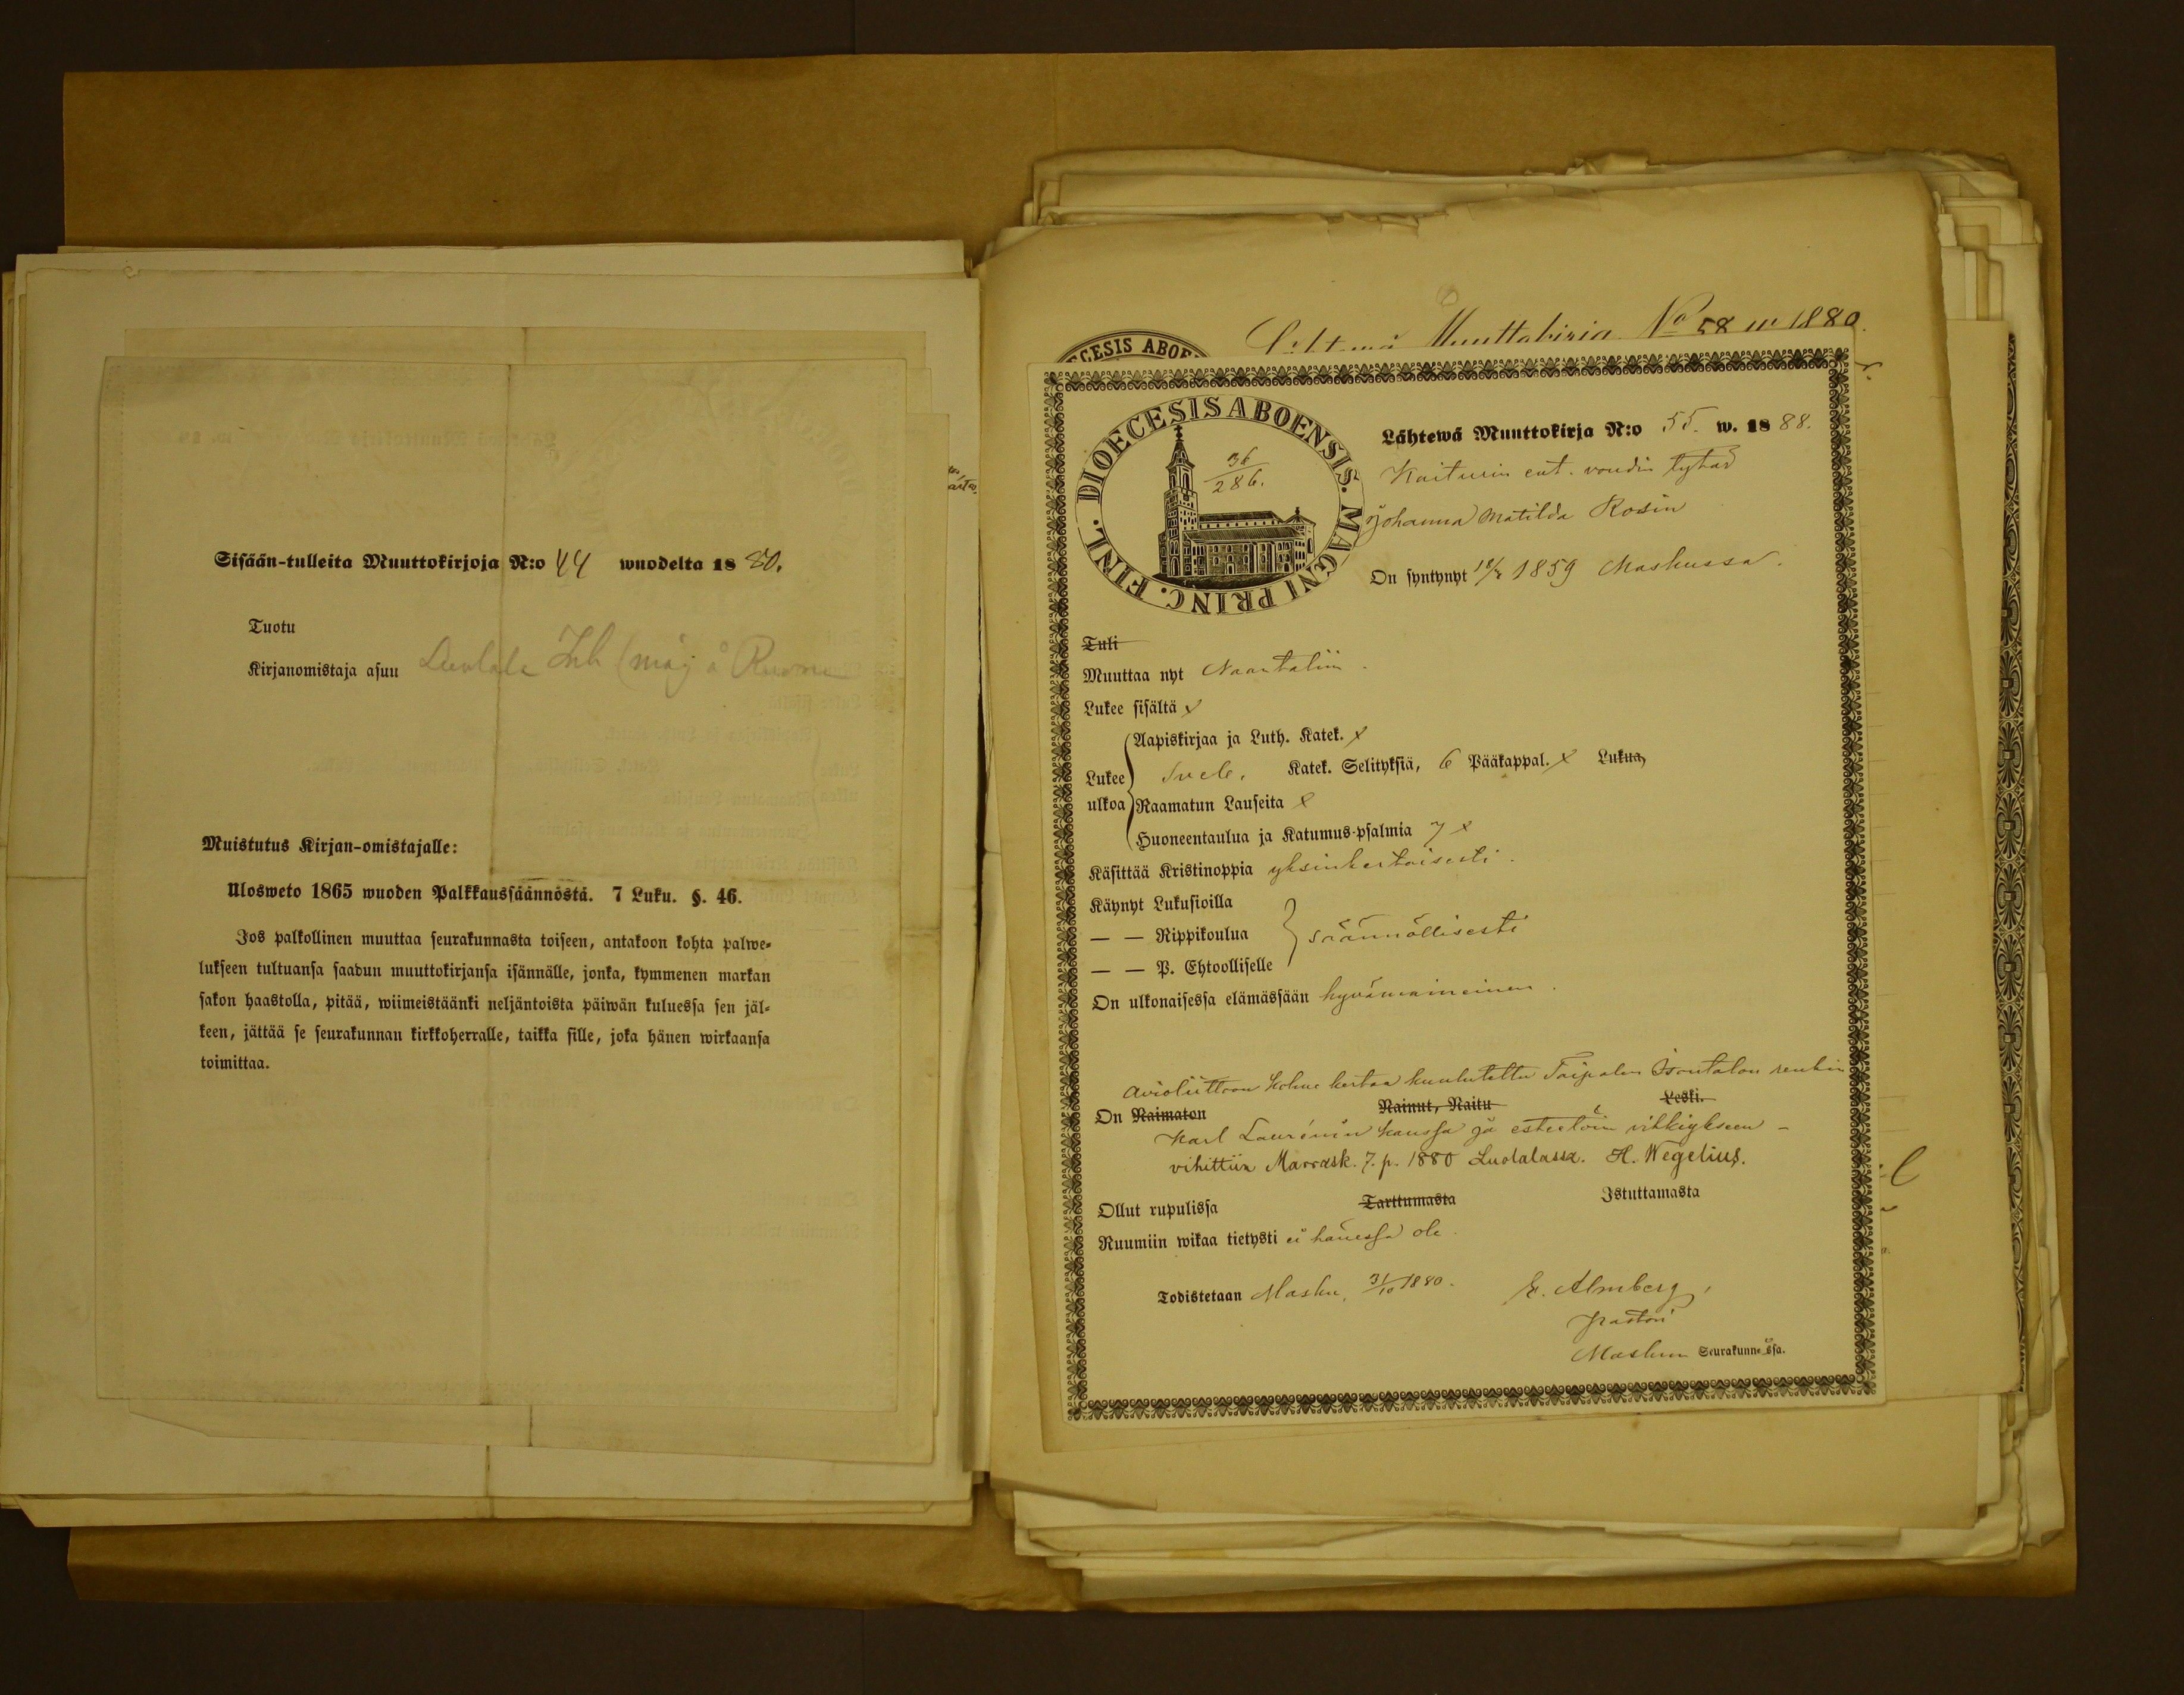 Sisään-tulleita Muuttokirjoja N:o 44 wuodelta 1880.
Tuotu
Kirjanomistaja asuu Luolala
Muistutus Kirjan-omistajalle:
Ulosweto 1865 wuoden Palkkaussäännöstä. 7 Luku. §. 46.
Jos palkollinen muuttaa seurakunnasta toiseen, antakoon kohta palwe-
lukseen tultuansa saadun muuttokirjansa isännälle, jonka, kymmenen markan
sakon haastolla, pitää, wiimeistäänki neljäntoista päiwän kuluessa sen jäl-
keen, jättää se seurakunnan kirkkoherralle, taikka sille, joka hänen wirkaansa
toimittaa.
Muuttokirja No 58 w 1880.
DIOECESIS ABOENSIS. MAGNI PRINC. FINL.
36
286.
Lähtewä Muuttokirja N:o 55. w. 1888.
ent. voudin tytär
Johanna Matilda Rosin
On syntynyt 18/ 1859 Maskussa.
Tuli
Muuttaa nyt Naantaliin.
Lukee sisältä x
Lukee ulkoa
Aapiskirjaa ja Luth. Katek. x
Sveb. Katek. Selityksiä, 6 Pääkappal. x Lukua,
Raamatun Lauseita x
Huoneentaulua ja Katumus-psalmia 7 x
Käsittää Kristinoppia yksinkertaisesti.
Käynyt Lukusioilla
— — Rippikoulua } säännöllisesti
— — P. Ehtoolliselle
On ulkonaisessa elämässään hyvämaineinen.
Avioliittoon kolme kertaa kuulutettu Taipalen Isontalon renkin
On Naimaton Nainut, Naitu Leski.
Karl Laurénin kanssa ja esteetöin vihkiykseen –
vihittiin Marrask. 7. p. 1880 Luolalassa. H. Wegelius.
Ollut rupulissa Tarttumasta Istuttamasta
Ruumiin wikaa tietysti ei hänessä ole.
Todistetaan Masku, 31/10 1880. E. Almberg,
pastori
Maskun Seurakunnassa.